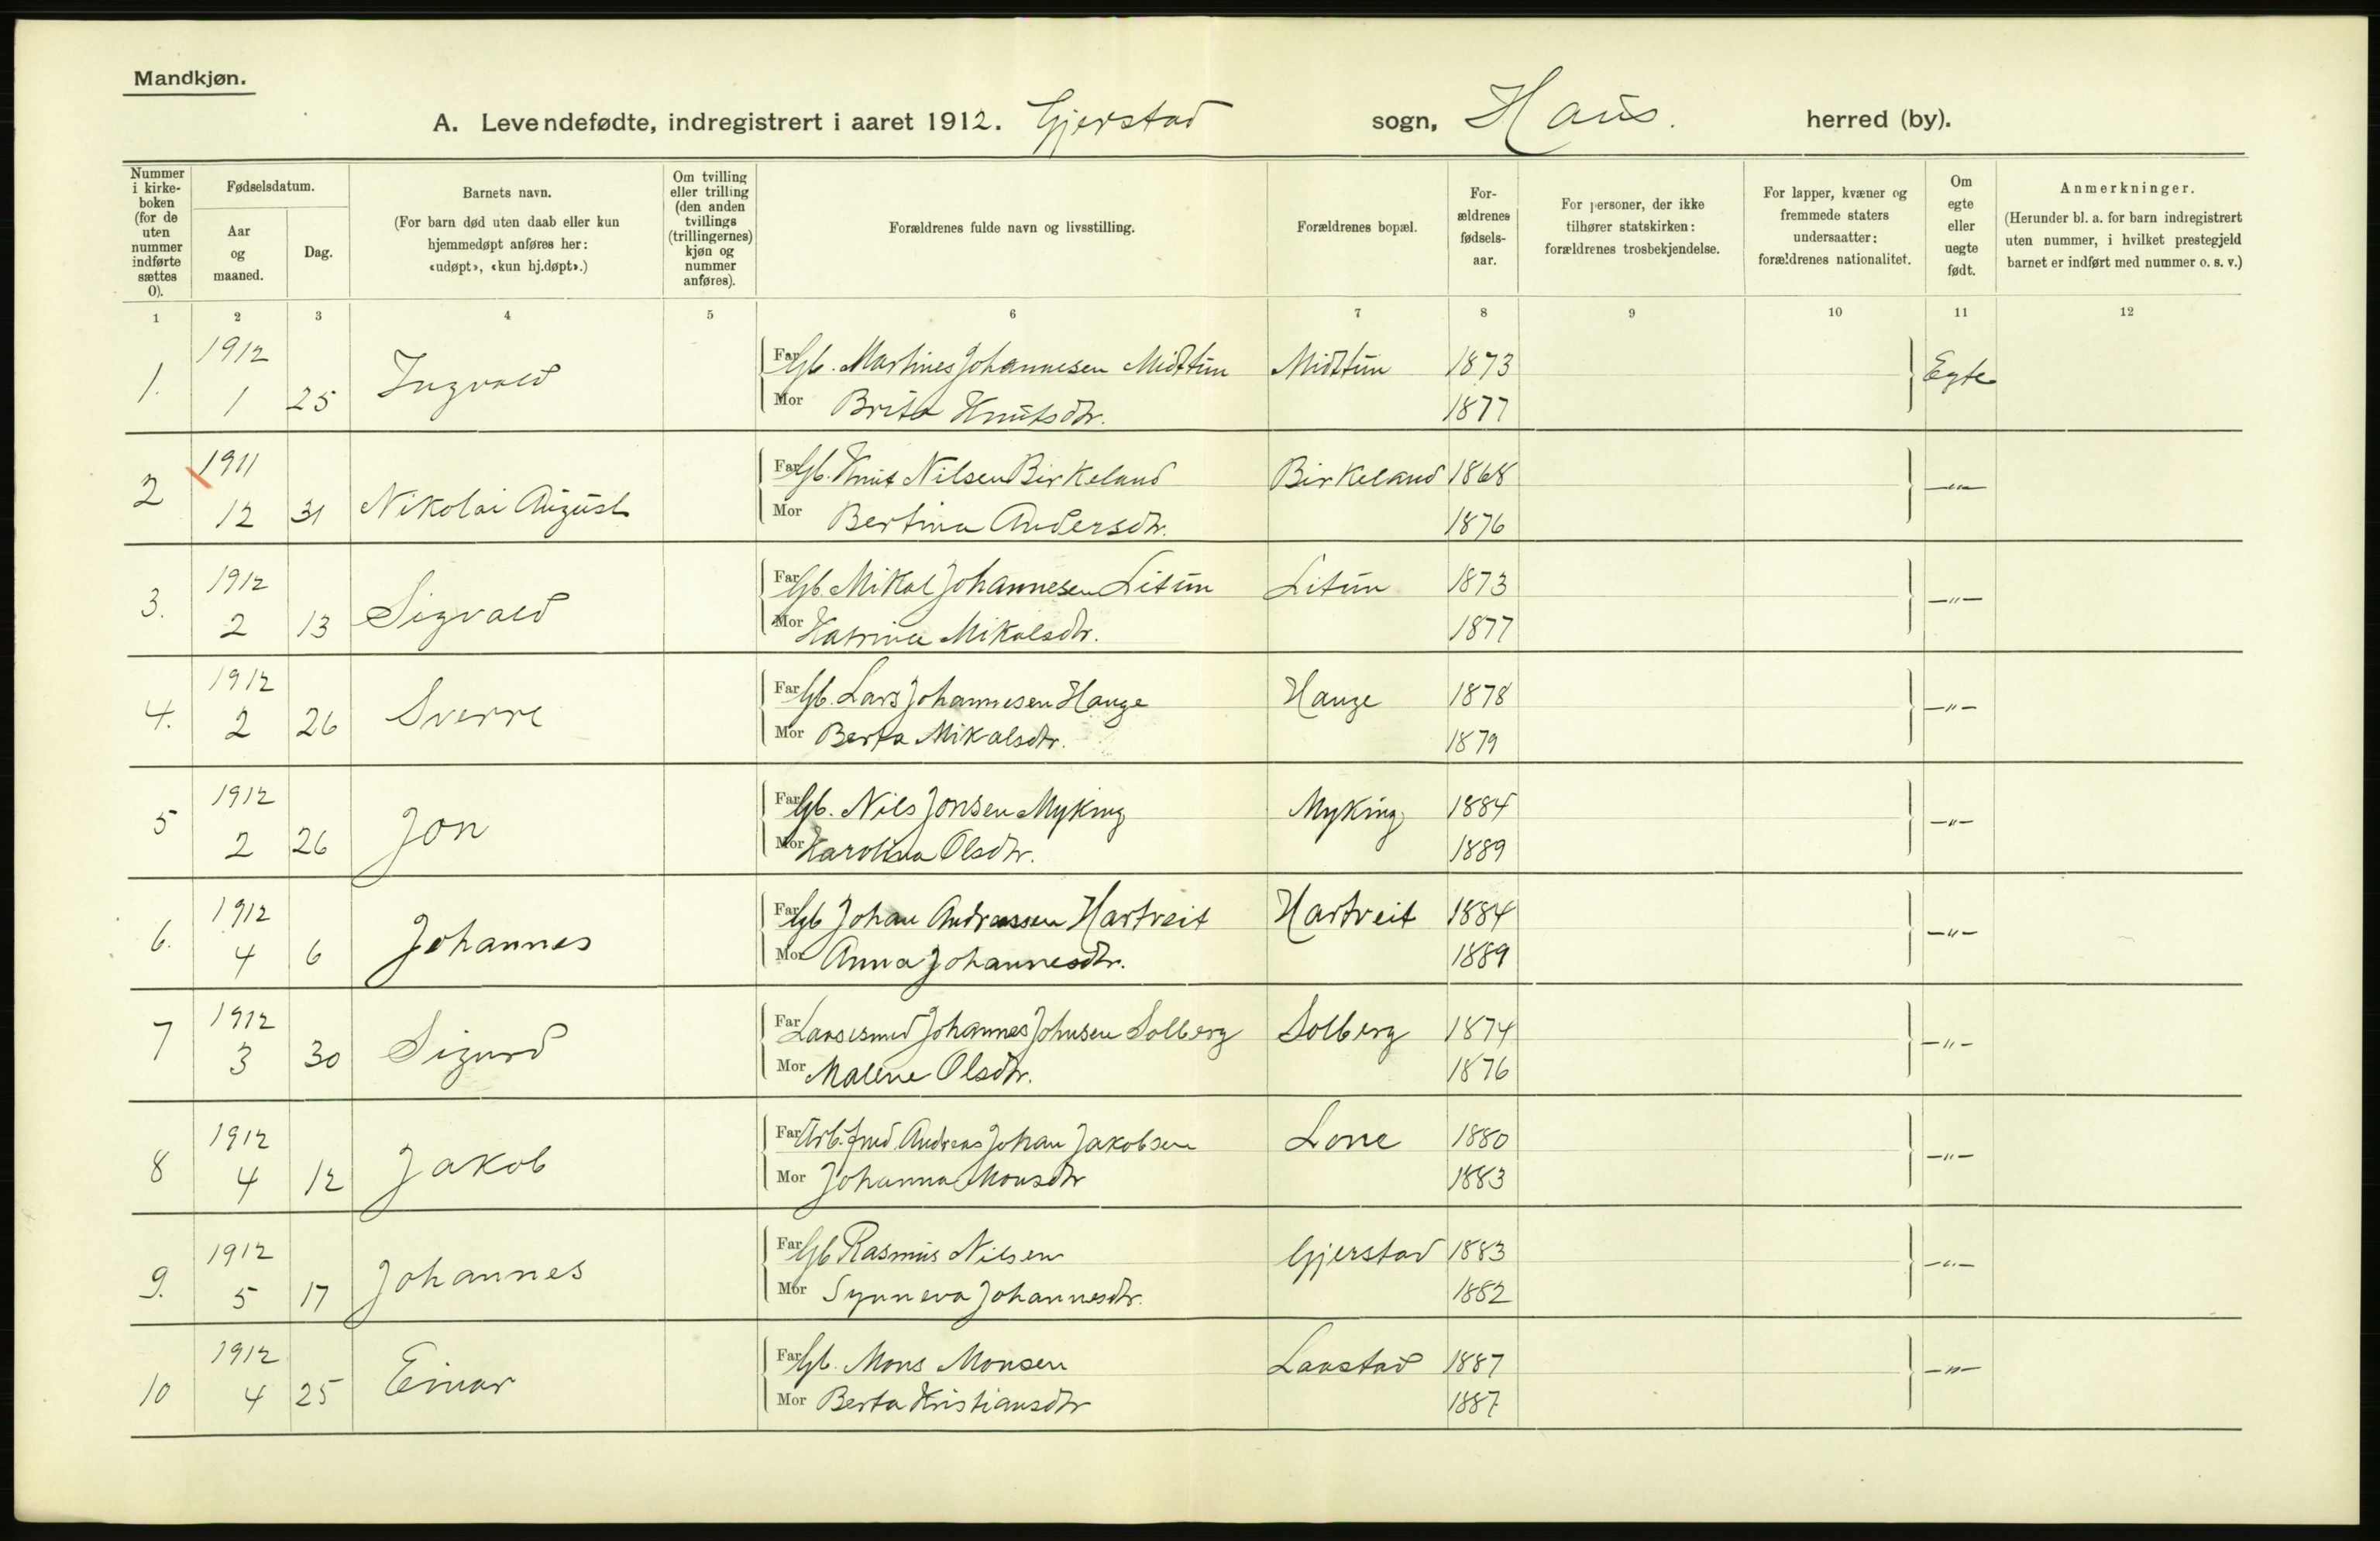 Mandkjøn.
A. Levendefødte, indregistrert i aaret 1912. Gjerstad sogn, Haus. herred (by).
Nummer i kirke-boken (for de uten nummer indførte sættes 0).
Fødselsdatum.
Aar og maaned.
Dag.
Barnets navn.
(For barn død uten daab eller kun hjemmedøpt anføres her: «udøpt», «kun hj.døpt».)
Om tvilling eller trilling (den anden tvillings (trillingernes) kjøn og nummer anføres).
Forældrenes fulde navn og livsstilling.
Forældrenes bopæl.
For-ældrenes fødsels-aar.
For personer, der ikke tilhører statskirken: forældrenes trosbekjendelse.
For lapper, kvæner og fremmede staters undersaatter: forældrenes nationalitet.
Om egte eller uegte født.
Anmerkninger.
(Herunder bl. a. for barn indregistrert uten nummer, i hvilket prestegjeld barnet er indført med nummer o. s. v.)
1 2 3 4 5 6 7 8 9 10 11 12
1. 1912 1 25 Ingvald Far Gb. Martines Johannesen Midttun Midttun 1873 Egte
Mor Brita Knutsdtr. 1877
2 1911 12 31 Nikolai August Far Gb. Knut Nilsen Birkeland Birkeland 1868 —"—
Mor Bertina Andersdtr. 1876
3. 1912 2 13 Sigvald Far Gb Mikal Johannesen Litun Litun 1873 —"—
Mor Katrina Mikalsdtr. 1877
4. 1912 2 26 Sverre Far Gb. Lars Johannesen Hauge Hauge 1878 —"—
Mor Berta Mikalsdtr. 1879
5 1912 2 26 Jon Far Gb. Nils Jonsen Myking Myking 1884 —"—
Mor Karolina Olsdtr. 1889
6. 1912 4 6 Johannes Far Gb Johan Andreassen Hartveit Hartveit 1884 —"—
Mor Anna Johannesdtr. 1889
7 1912 3 30 Sigurd Far Laasesmed Johannes Johnsen Solberg Solberg 1874 —"—
Mor Malene Olsdtr. 1876
8 1912 4 12 Jakob Far Arb. Andreas Johan Jakobsen Lone 1880 —"—
Mor Johanna Monsdtr 1883
9. 1912 5 17 Johannes Far Gb Rasmus Nilsen Gjerstad 1883 —"—
Mor Synneva Johannesdtr. 1882
10 1912 4 25 Einar Far Gb. Mons Monsen Laastad 1887 —"—
Mor Berta Kristiansdtr 1887